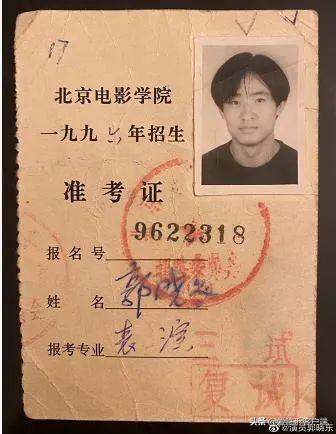 17
北京电影学院
一九九六年招生
准考证
报名号 9622318
姓 名 郭晓东
报考专业 表演
三试
复试
@演员郭晓东